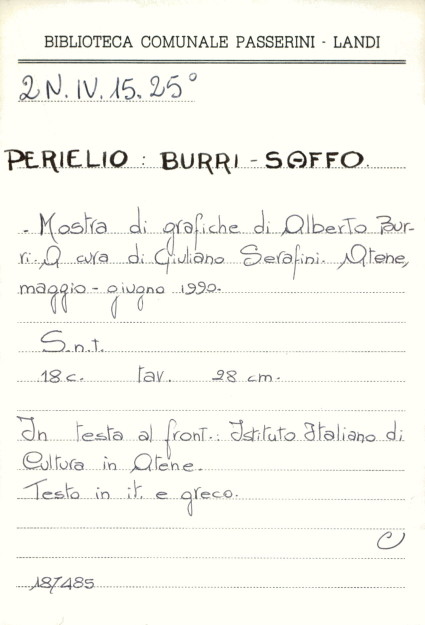 BIBLIOTECA COMUNALE PASSERINI - LANDI
2 N. IV. 15. 25°
PERIELIO : BURRI - SAFFO.
- Mostra di grafiche di Alberto Bur-
ri. A cura di Giuliano Serafini. Atene,
maggio - giugno 1990.
S.n.t.
18 c. tav. 28 cm.
In testa al front.: Istituto Italiano di
Cultura in Atene.
Testo in it. e greco.
C
187485